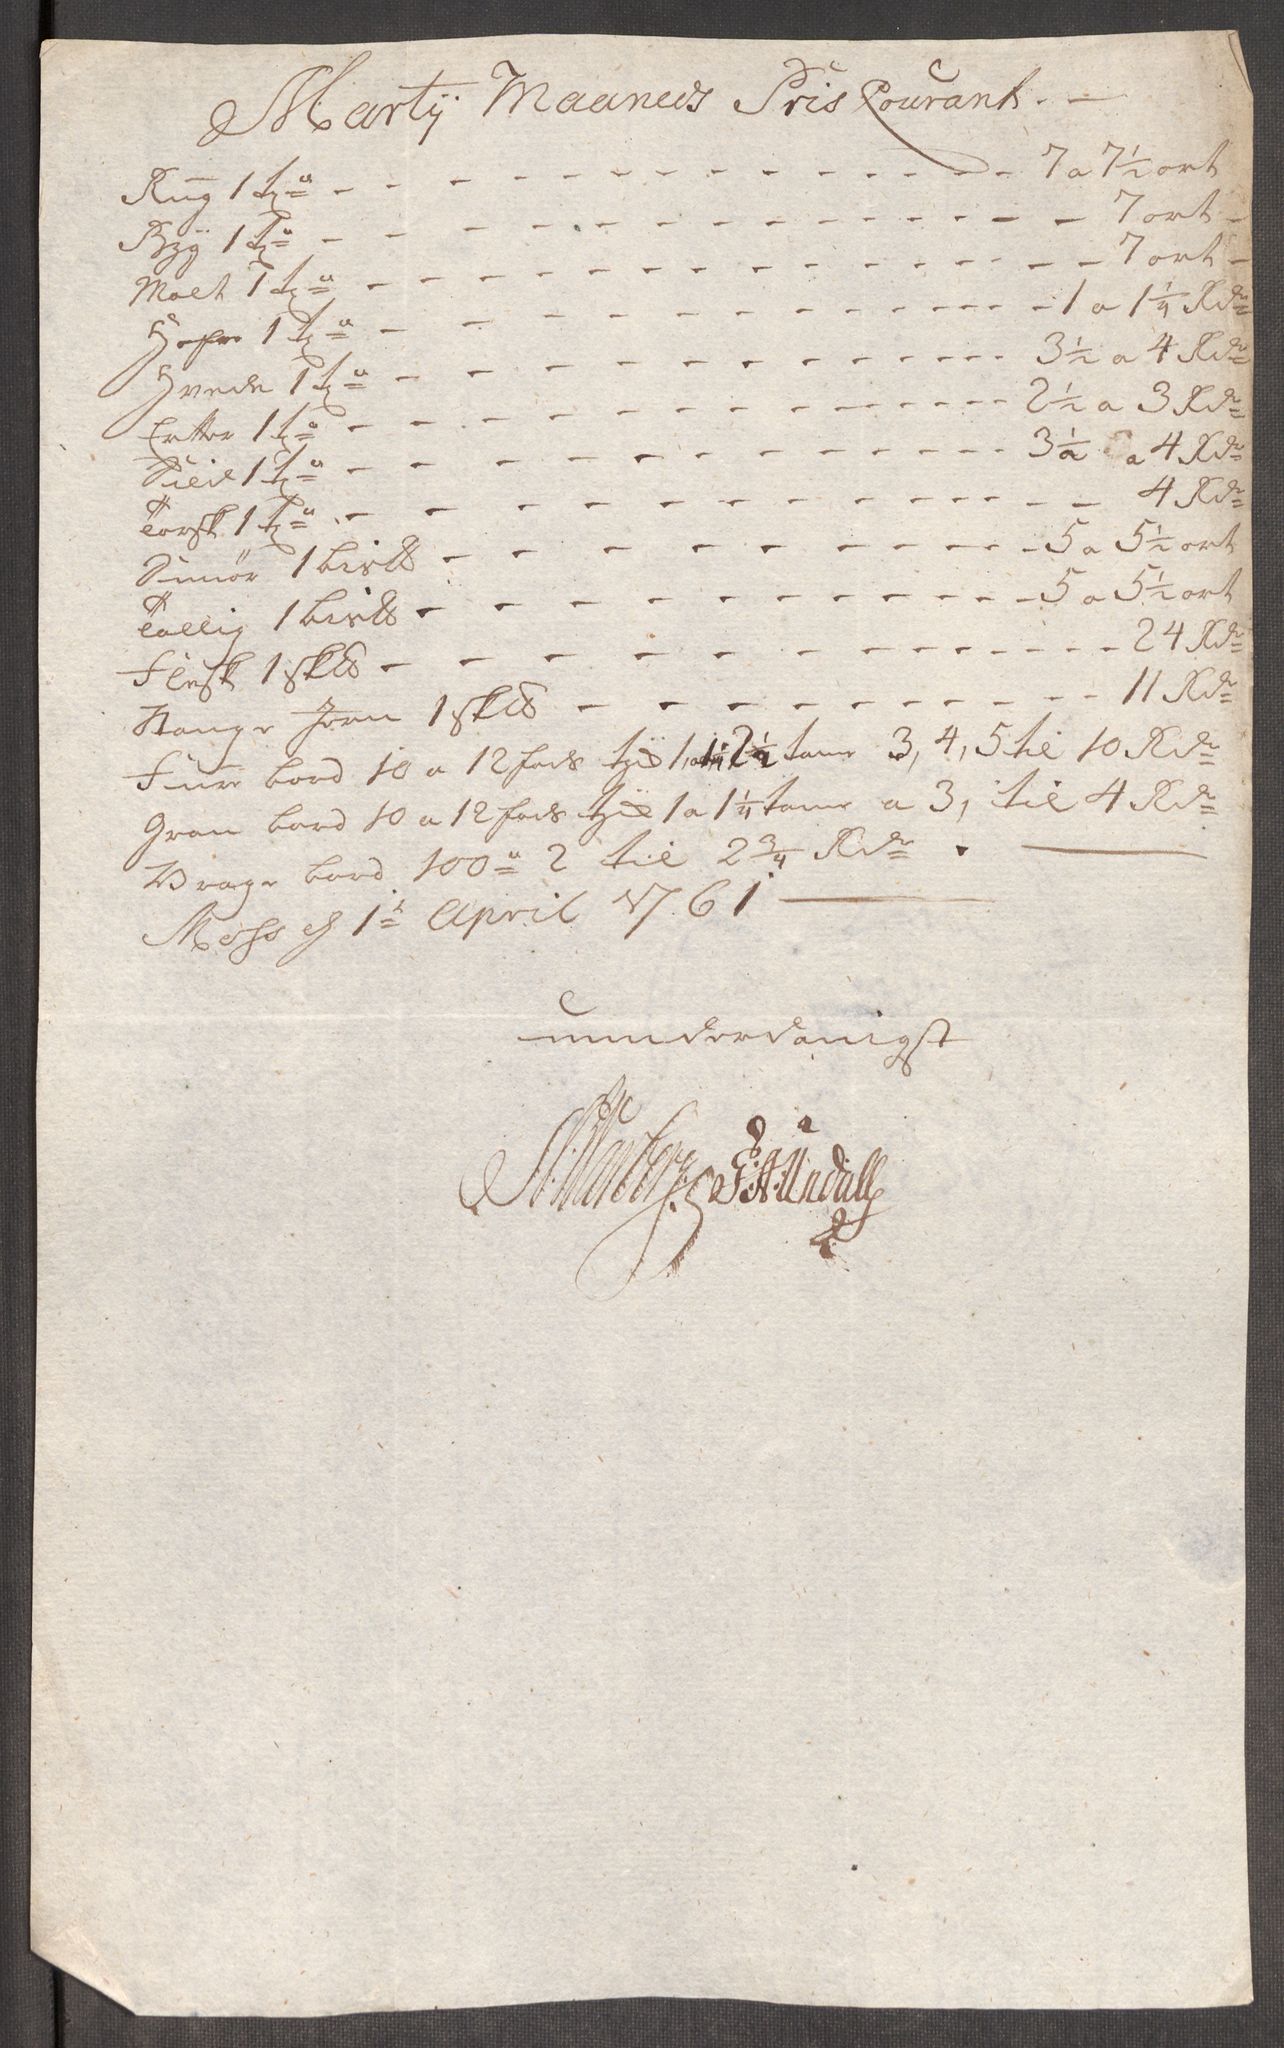 Martÿ Maaneds Pris Courant. —
Rug 1 tꝛ - - - 7 a 7½ ort
Byg 1 Tꝛ - - - 7 ort -
Malt 1 tꝛ - - - 7 ort -
Hafre 1 tꝛ - - - 1 a 1¼ Rdr
Hvede 1 tꝛ - - - 3½ a 4 Rdr
Erter 1 tꝛ - - - 2½ a 3 Rdr
Sild 1 tꝛ - - - 3½ a 4 Rdr
Torsk 1 tꝛ - - - 4 Rdr
Smør 1 bis℔ - - - 5 a 5½ ort
Tallig 1 bis℔ - - - 5 a 5½ ort
Flesk 1 sk℔ - - - 24 Rdr
Stange Jern 1 sk℔ - - - 11 Rdr
Fure bord 10 a 12 fods tyk 1 a 1¼ 2½ tome 3, 4, 5 til 10 Rdr
Gran bord 10 a 12 fods tyk 1 a 1¼ tome a 3, til 4 Rdr
Vrage bord 100 2 til 2¾ Rdr. —
Moss d 1t April 1761 —
underdanigst
F: A: Undall